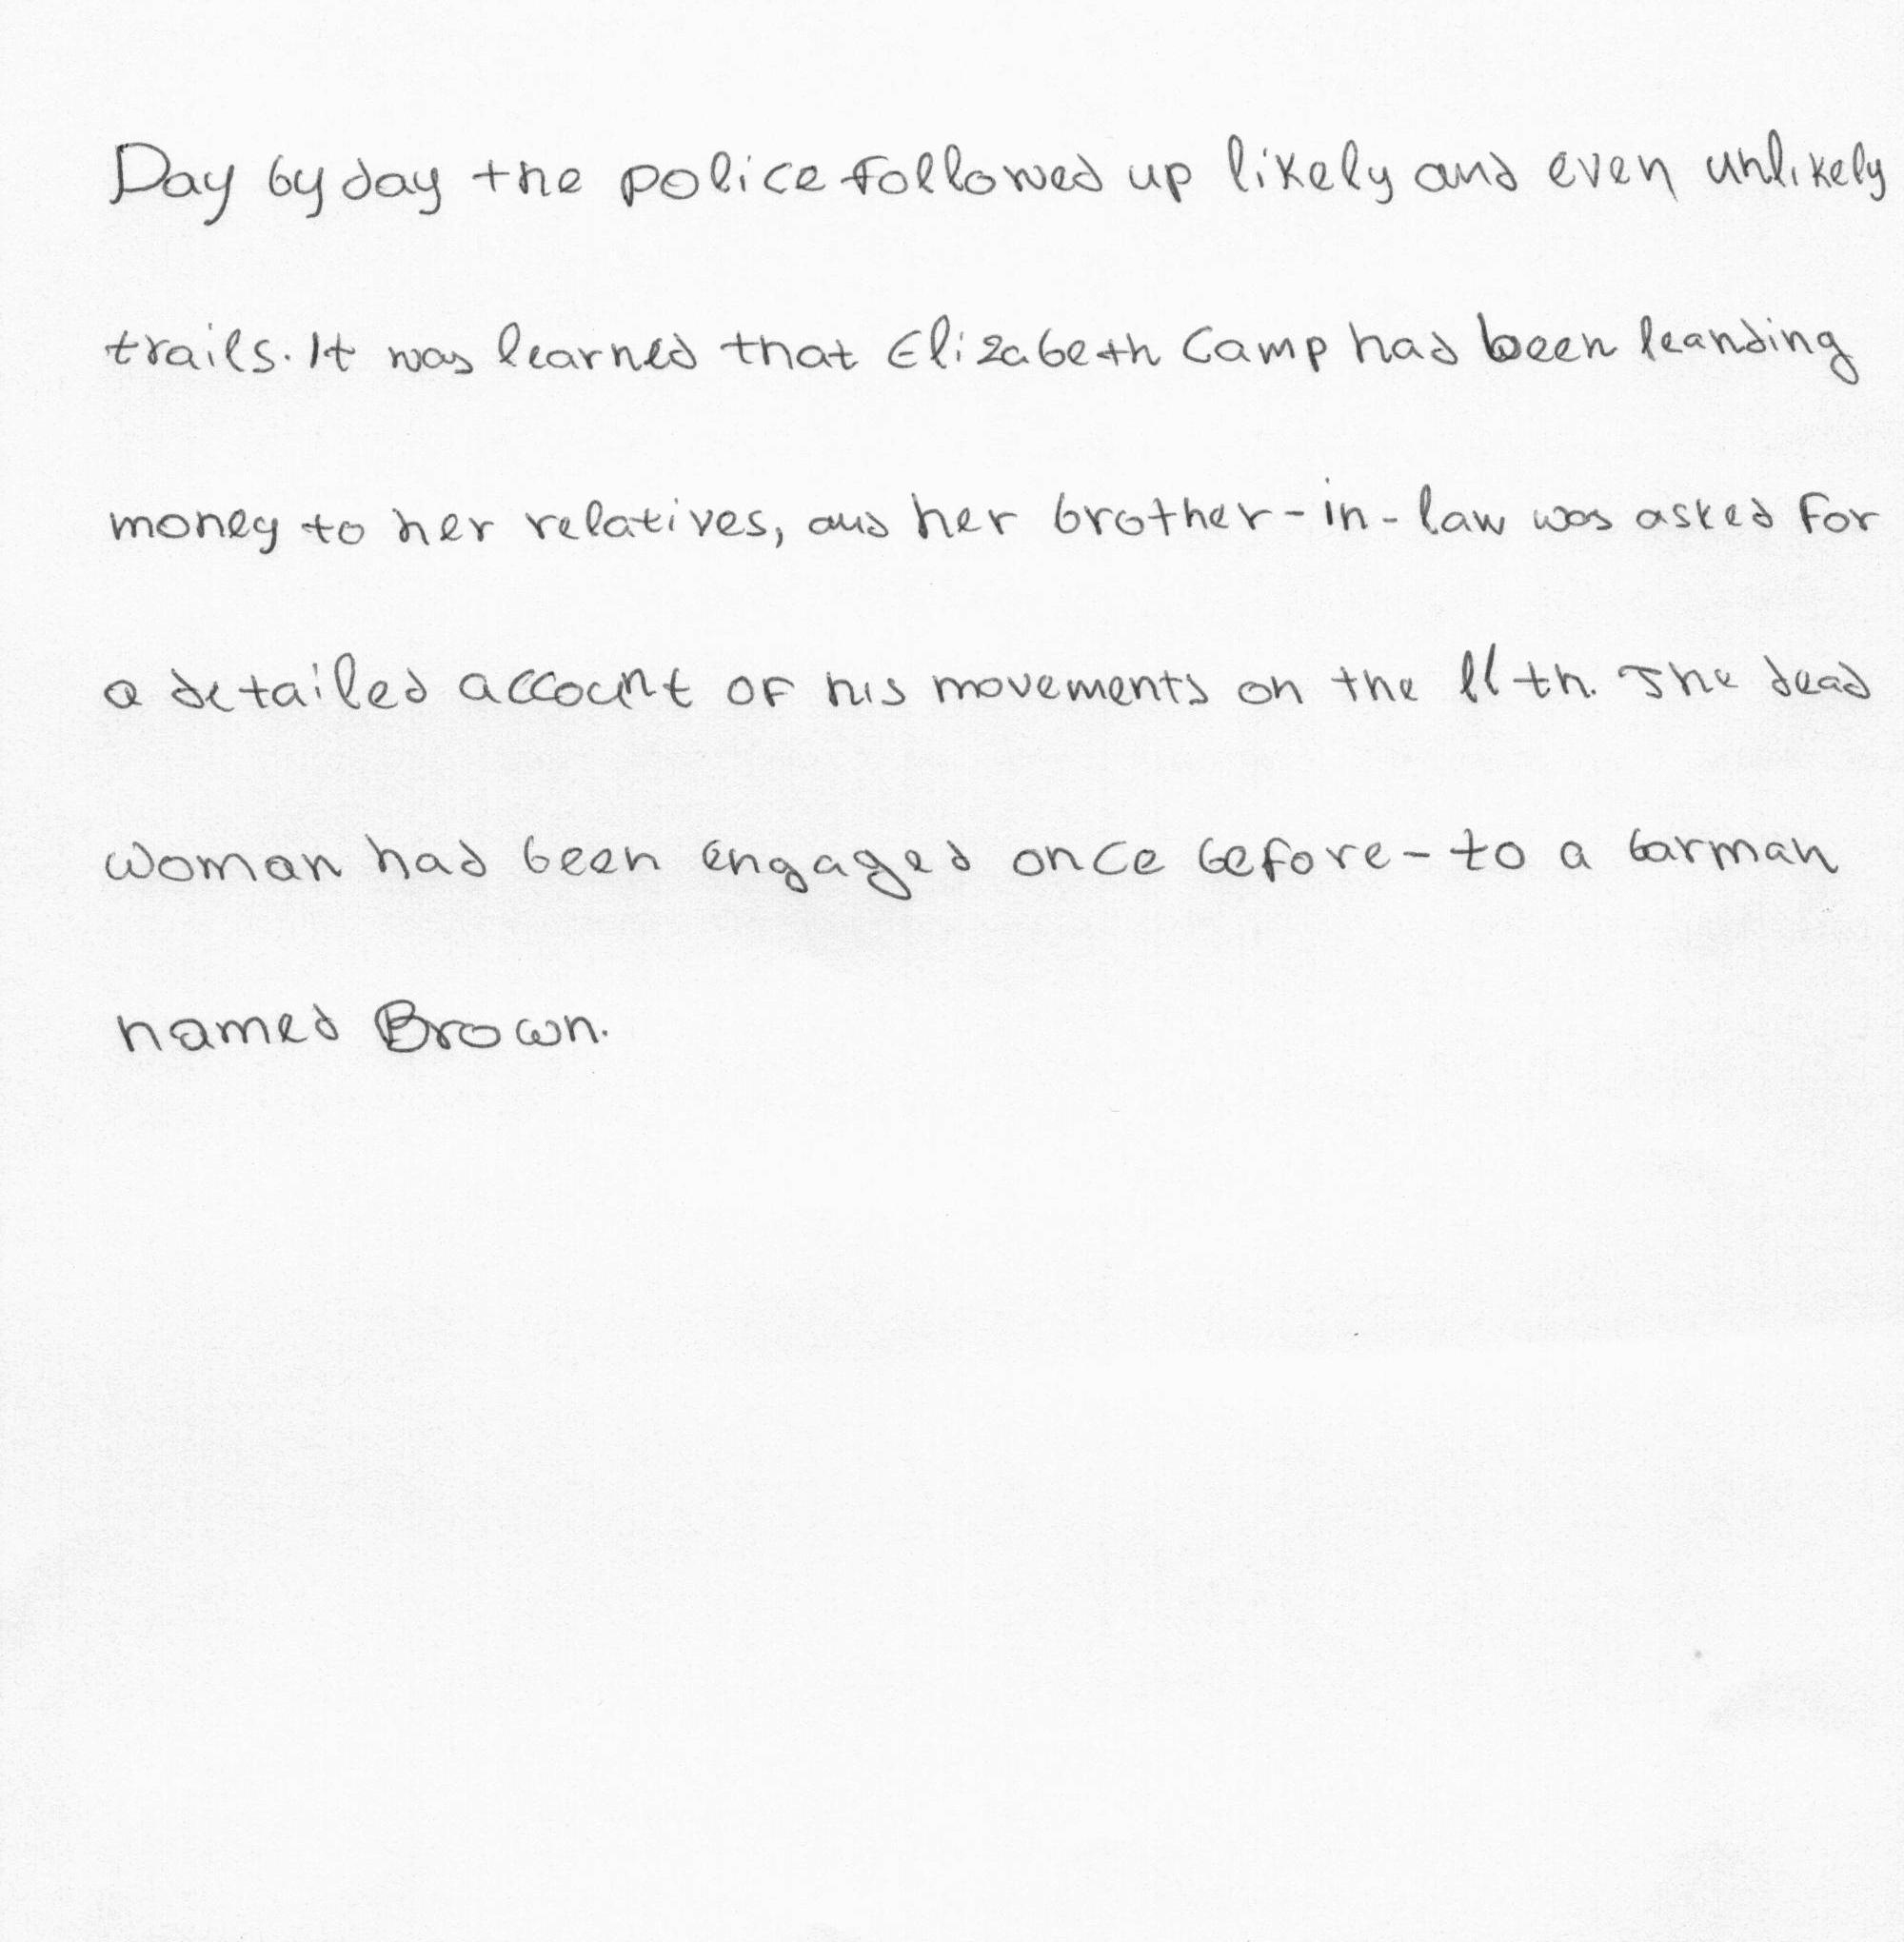 Day by day the police followed up likely and even unlikely
trails. It was learned that Elizabeth Camp had been leanding
money to her relatives, and her brother-in-law was asked for
a detailed account of his movements on the 11th. The dead
woman had been engaged once before - to a barman
named Brown.